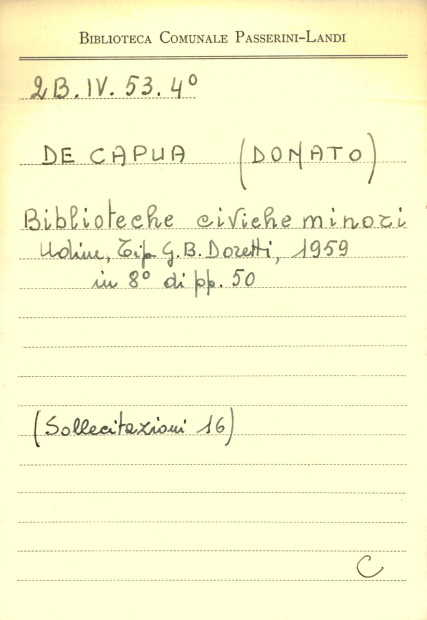 BIBLIOTECA COMUNALE PASSERINI-LANDI
2B.IV.53.4°
DE CAPUA (DONATO)
Biblioteche civiche minori
Udine, Tip G.B. Doretti, 1959
in 8° di pp. 50
(Sollecitazioni 16)
C